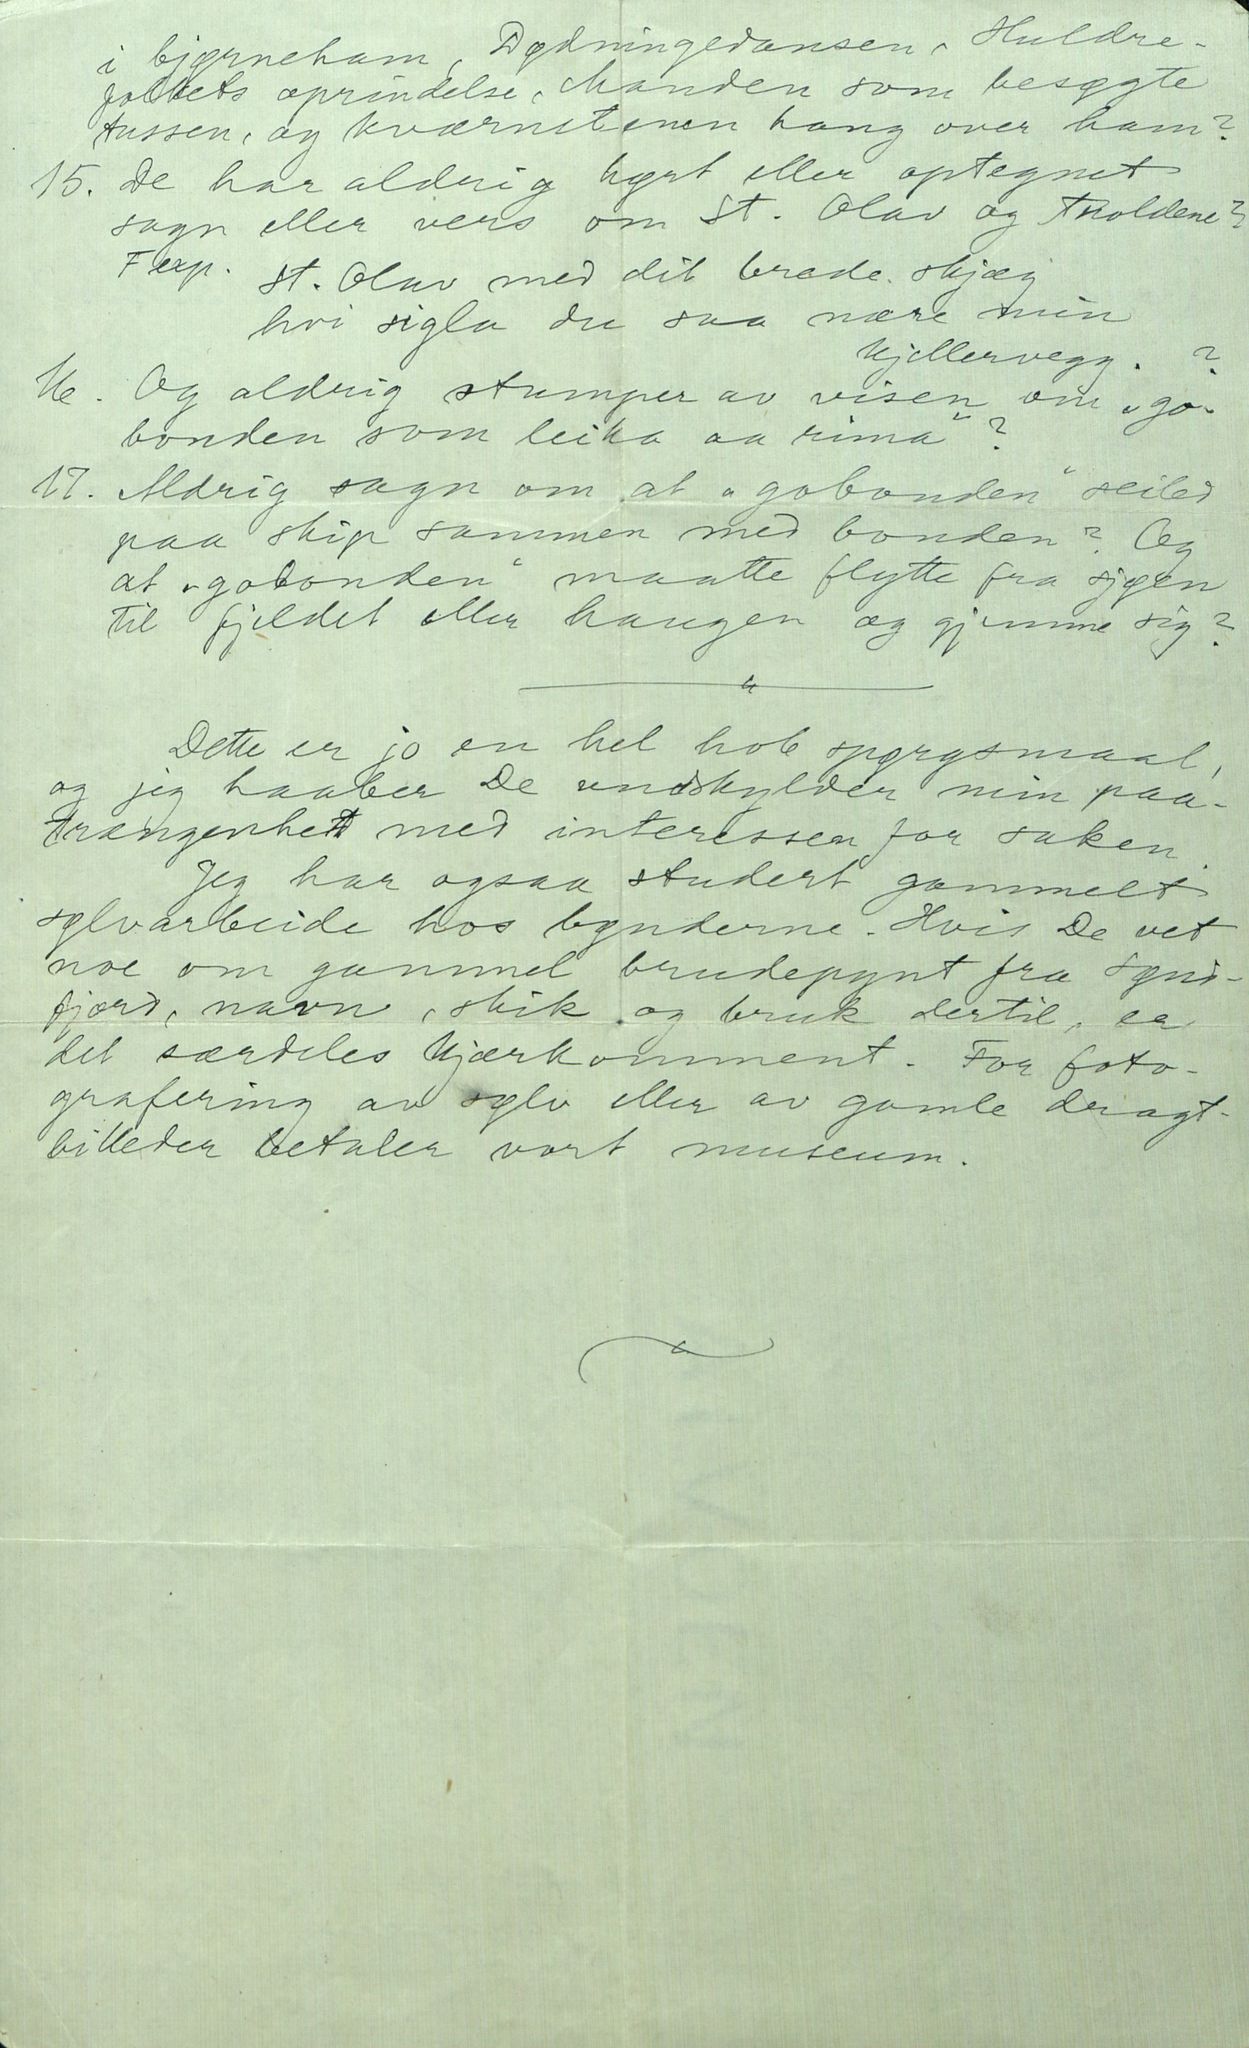 i bjørneham, Dødningedansen, Huldre-
folkets oprindelse, Manden som besøgte
tussen, og kværnstenen hang over ham?
15. De har aldrig hørt eller optegnet
sagn eller vers om St. Olav og troldene?
F exp. St. Olav med dit brede skjæg
hvi sigla du saa nære min
kjellervegg. ?
16. Og aldrig stumper av visen om „go-
bonden som leika aa rima"?
17. Aldrig sagn om at „gobonden" seiled
paa skip sammen med bonden? Og
at „gobonden" maatte flytte fra sjøen
til fjeldet eller haugen og gjemme sig?
Dette er jo en hel hob spørgsmaal,
og jeg haaber De undskylder min paa-
trængenhet med interessen for saken.
Jeg har ogsaa studert gammelt
sølvarbeide hos bønderne. Hvis De vet
noe om gammel brudepynt fra Sønd-
fjord, navn, skik og bruk dertil, er
det særdeles kjærkomment. For foto-
grafering av sølv eller av gamle dragt-
billeder betaler vort museum.